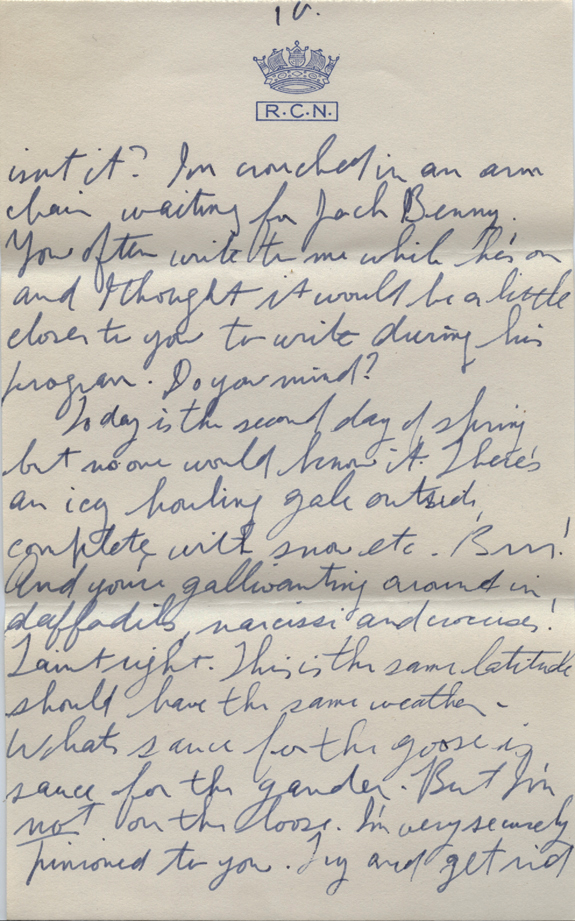 10.
R.C.N.
isn't it? I'm crouched in an arm
chair waiting for Jack Benny.
You often write to me while he's on
and I thought it would be a little
closer to you to write during his
program. Do you mind?
Today is the second day of spring
but no one would know it. There's
an icy howling gale outside,
complete with snow etc. Brrr!
And you're gallivanting around in
daffodils, narcissi and crocuses!
Taint right. This is the same latitude
should have the same weather.
Whats sauce for the goose is
sauce for the gander. But I'm
not on the loose. I'm very securely
pinioned to you. Try and get rid